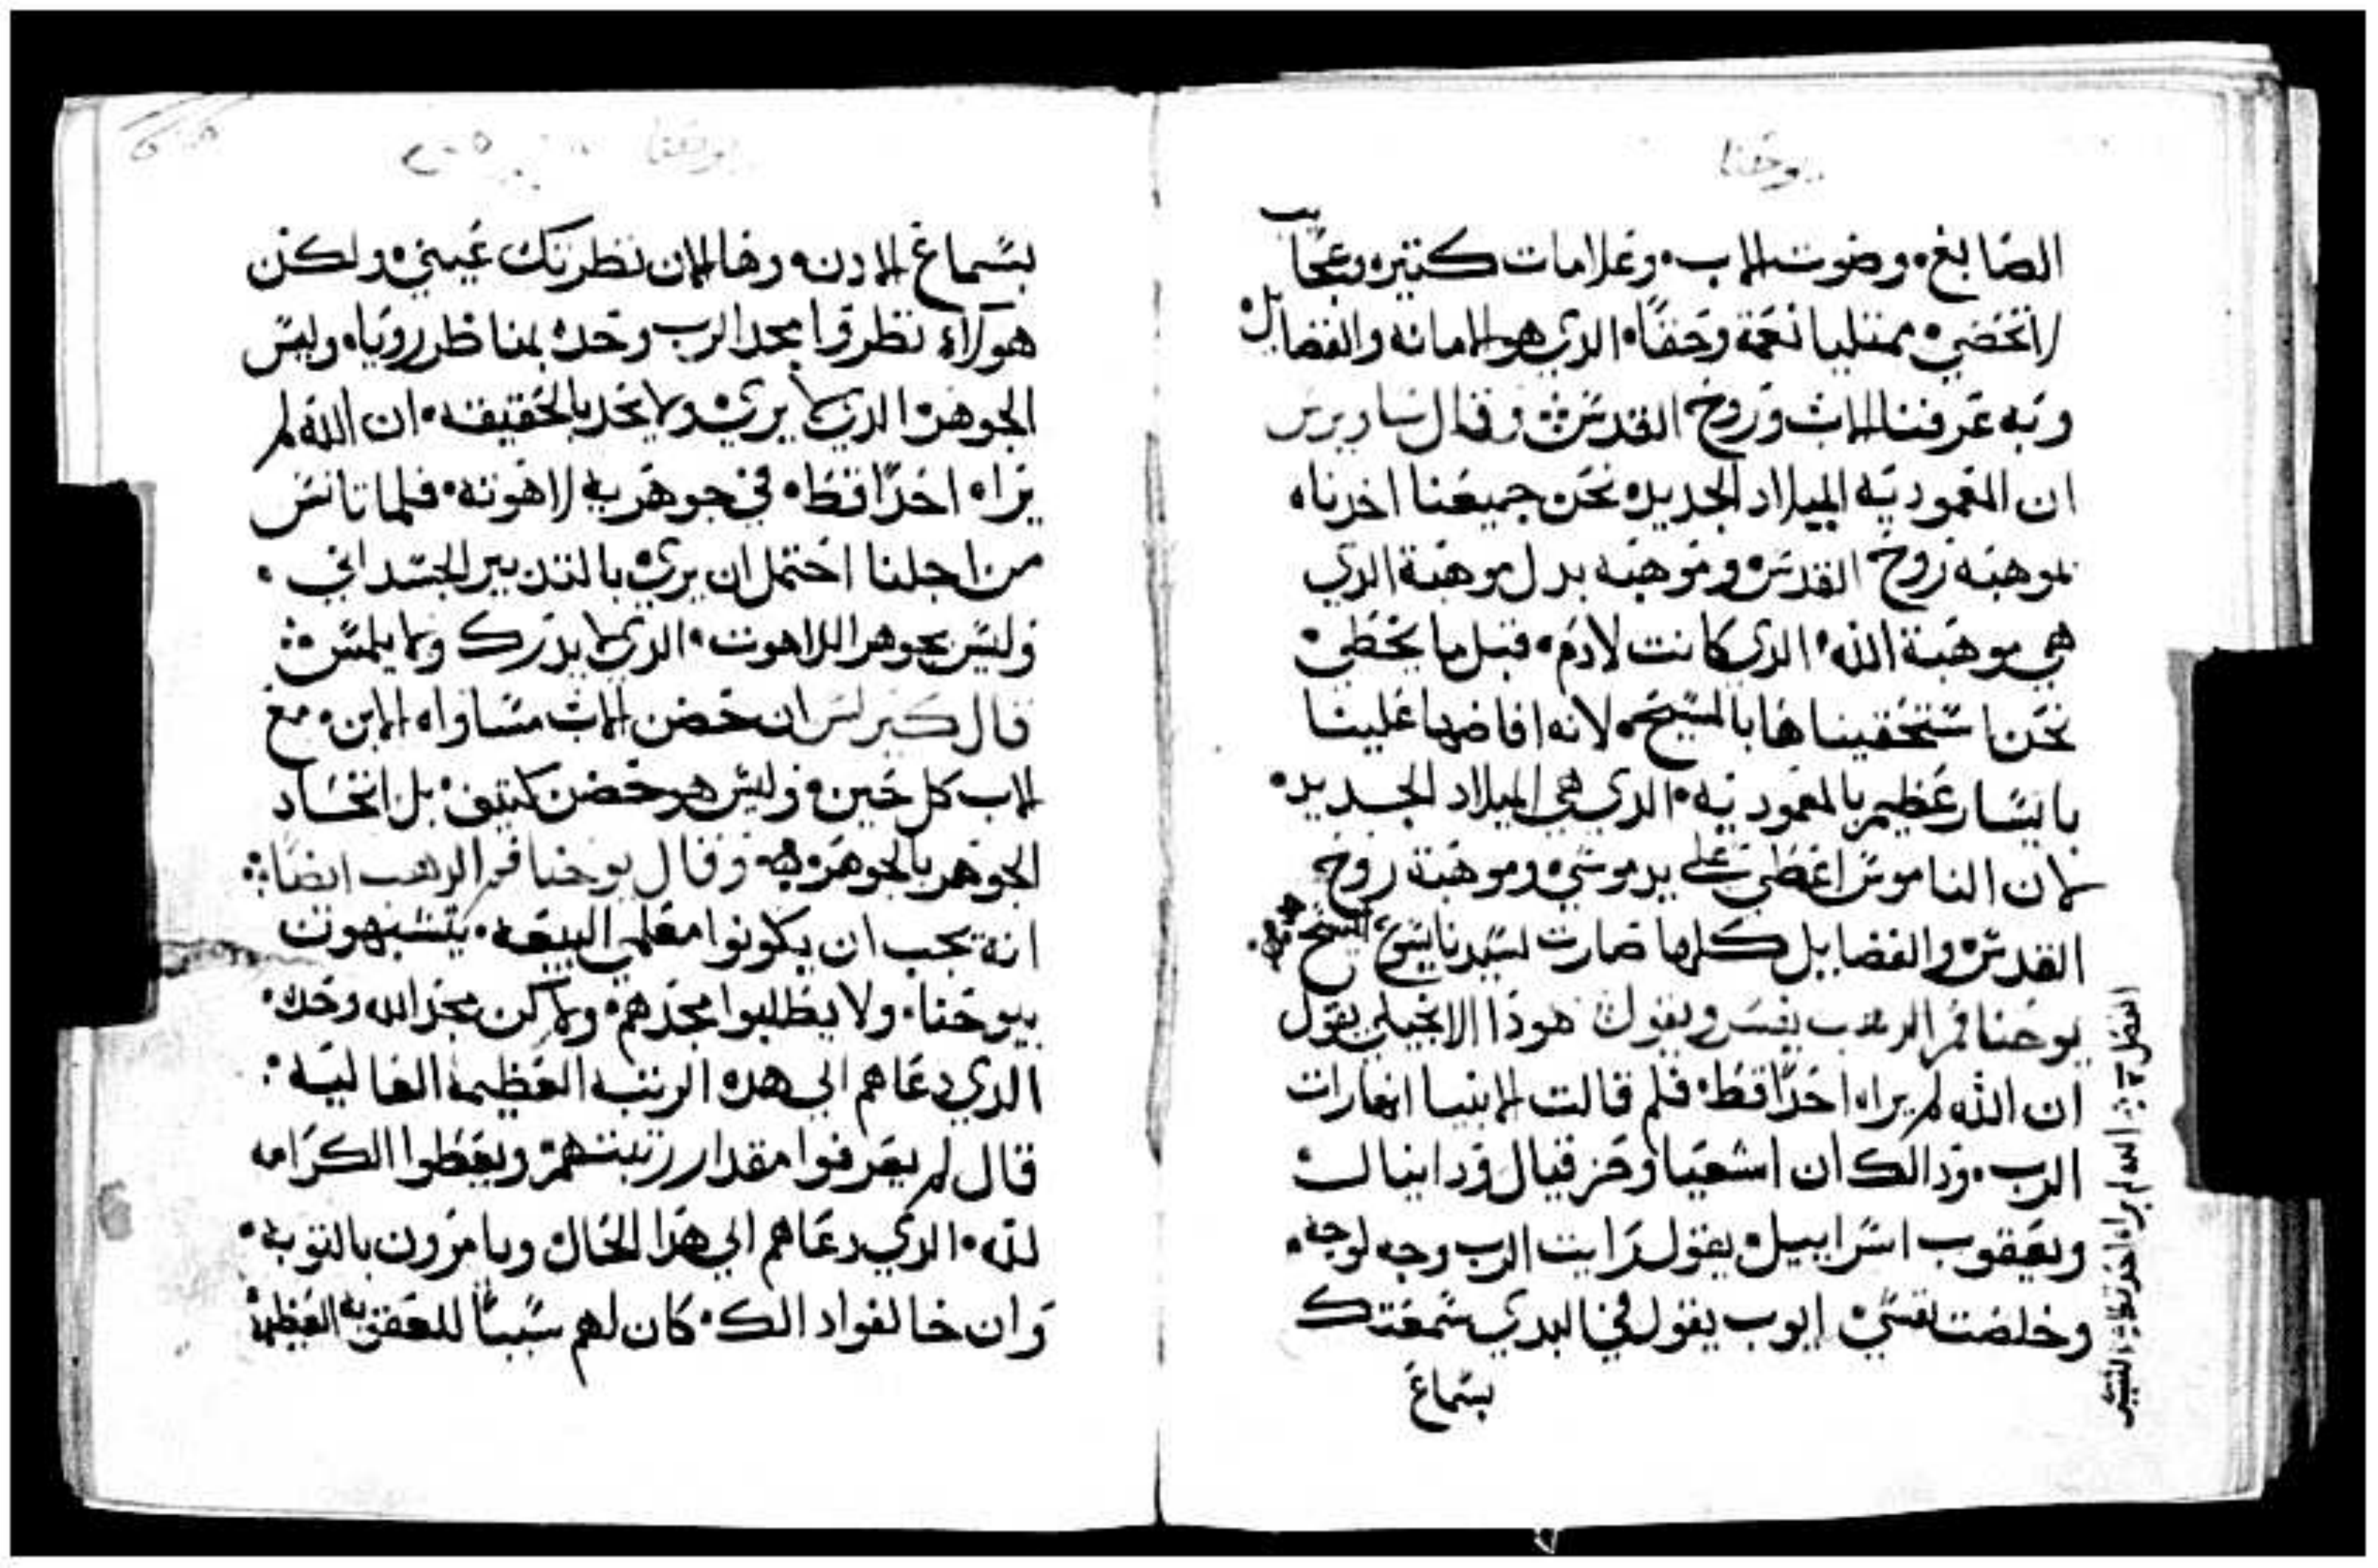 يوحنا
الصابغ. وصوت الاب. وعلامات كتيره وعجايب
لا تحصي. ممتليا نعمة وحقا. الدي هو الامانه والفضايل
وبه عرفنا الاب وروح القدس. وقال ساويرس
ان المعموديه الميلاد الجديد. نحن جميعنا اخدناه
موهبه روح القدس. وموهبه بدل موهبة الدي
هي موهبة الله. الدي كانت لادم. قبل ما يخطي.
نحن استحقيناها بالمسيح. لانه افاضها علينا
بايسار عظيم بالمعموديه. الدي هي الميلاد الجديد.
لان الناموس اعطي على يد موسي. وموهبة روح
القدس والفضايل كلها صارت لسيدنا يسوع المسيح
يوحنا فم الدهب يفسر ويقول هودا الانجيلي يقول
ان الله لم يراه احدا قط. فلم قالت الانبيا انها رات
الرب. ودالك ان اشعيا وحزقيال ودانيال
ويعقوب اسراييل يقول رايت الرب وجه لوجه.
وخلصت نفسي. ايوب يقول في البدي سمعتك
بسماع
يوحنا
بسماع الادن. وها الان نظرتك عيني. ولكن
هولاء نظروا مجد الرب وحده بمناظر رويا. وليس
الجوهر. الدي لا يري. ولا يحد بالحقيقه. ان الله لم
يراه احدا قط. في جوهريه لاهوته. فلما تانس
من اجلنا احتمل ان يري بالتدبير الجسداني.
وليس بجوهر اللاهوت. الدي لا يدرك ولا يلمس
قال كيرلس ان حضن الاب مساواه الابن. مع
الاب كل حين. وليس هو حضن كتيف. بل اتحاد
الجوهر بالجوهر. وقال يوحنا فم الدهب ايضا
انه يجب ان يكونوا معلمي البيعه. يتشبهون
بيوحنا. ولا يطلبوا مجدهم. ولاكن مجد الله وحده.
الدي دعاهم الي هده الرتبه العظيمه العاليه.
قال لم يعرفوا مقدار رتبتهم. ويعطوا الكرامه
لله. الدي دعاهم الي هدا الحال. ويامرون بالتوبه.
وان خالفوا دالك. كان لهم سببا للعقوبه العظيمه